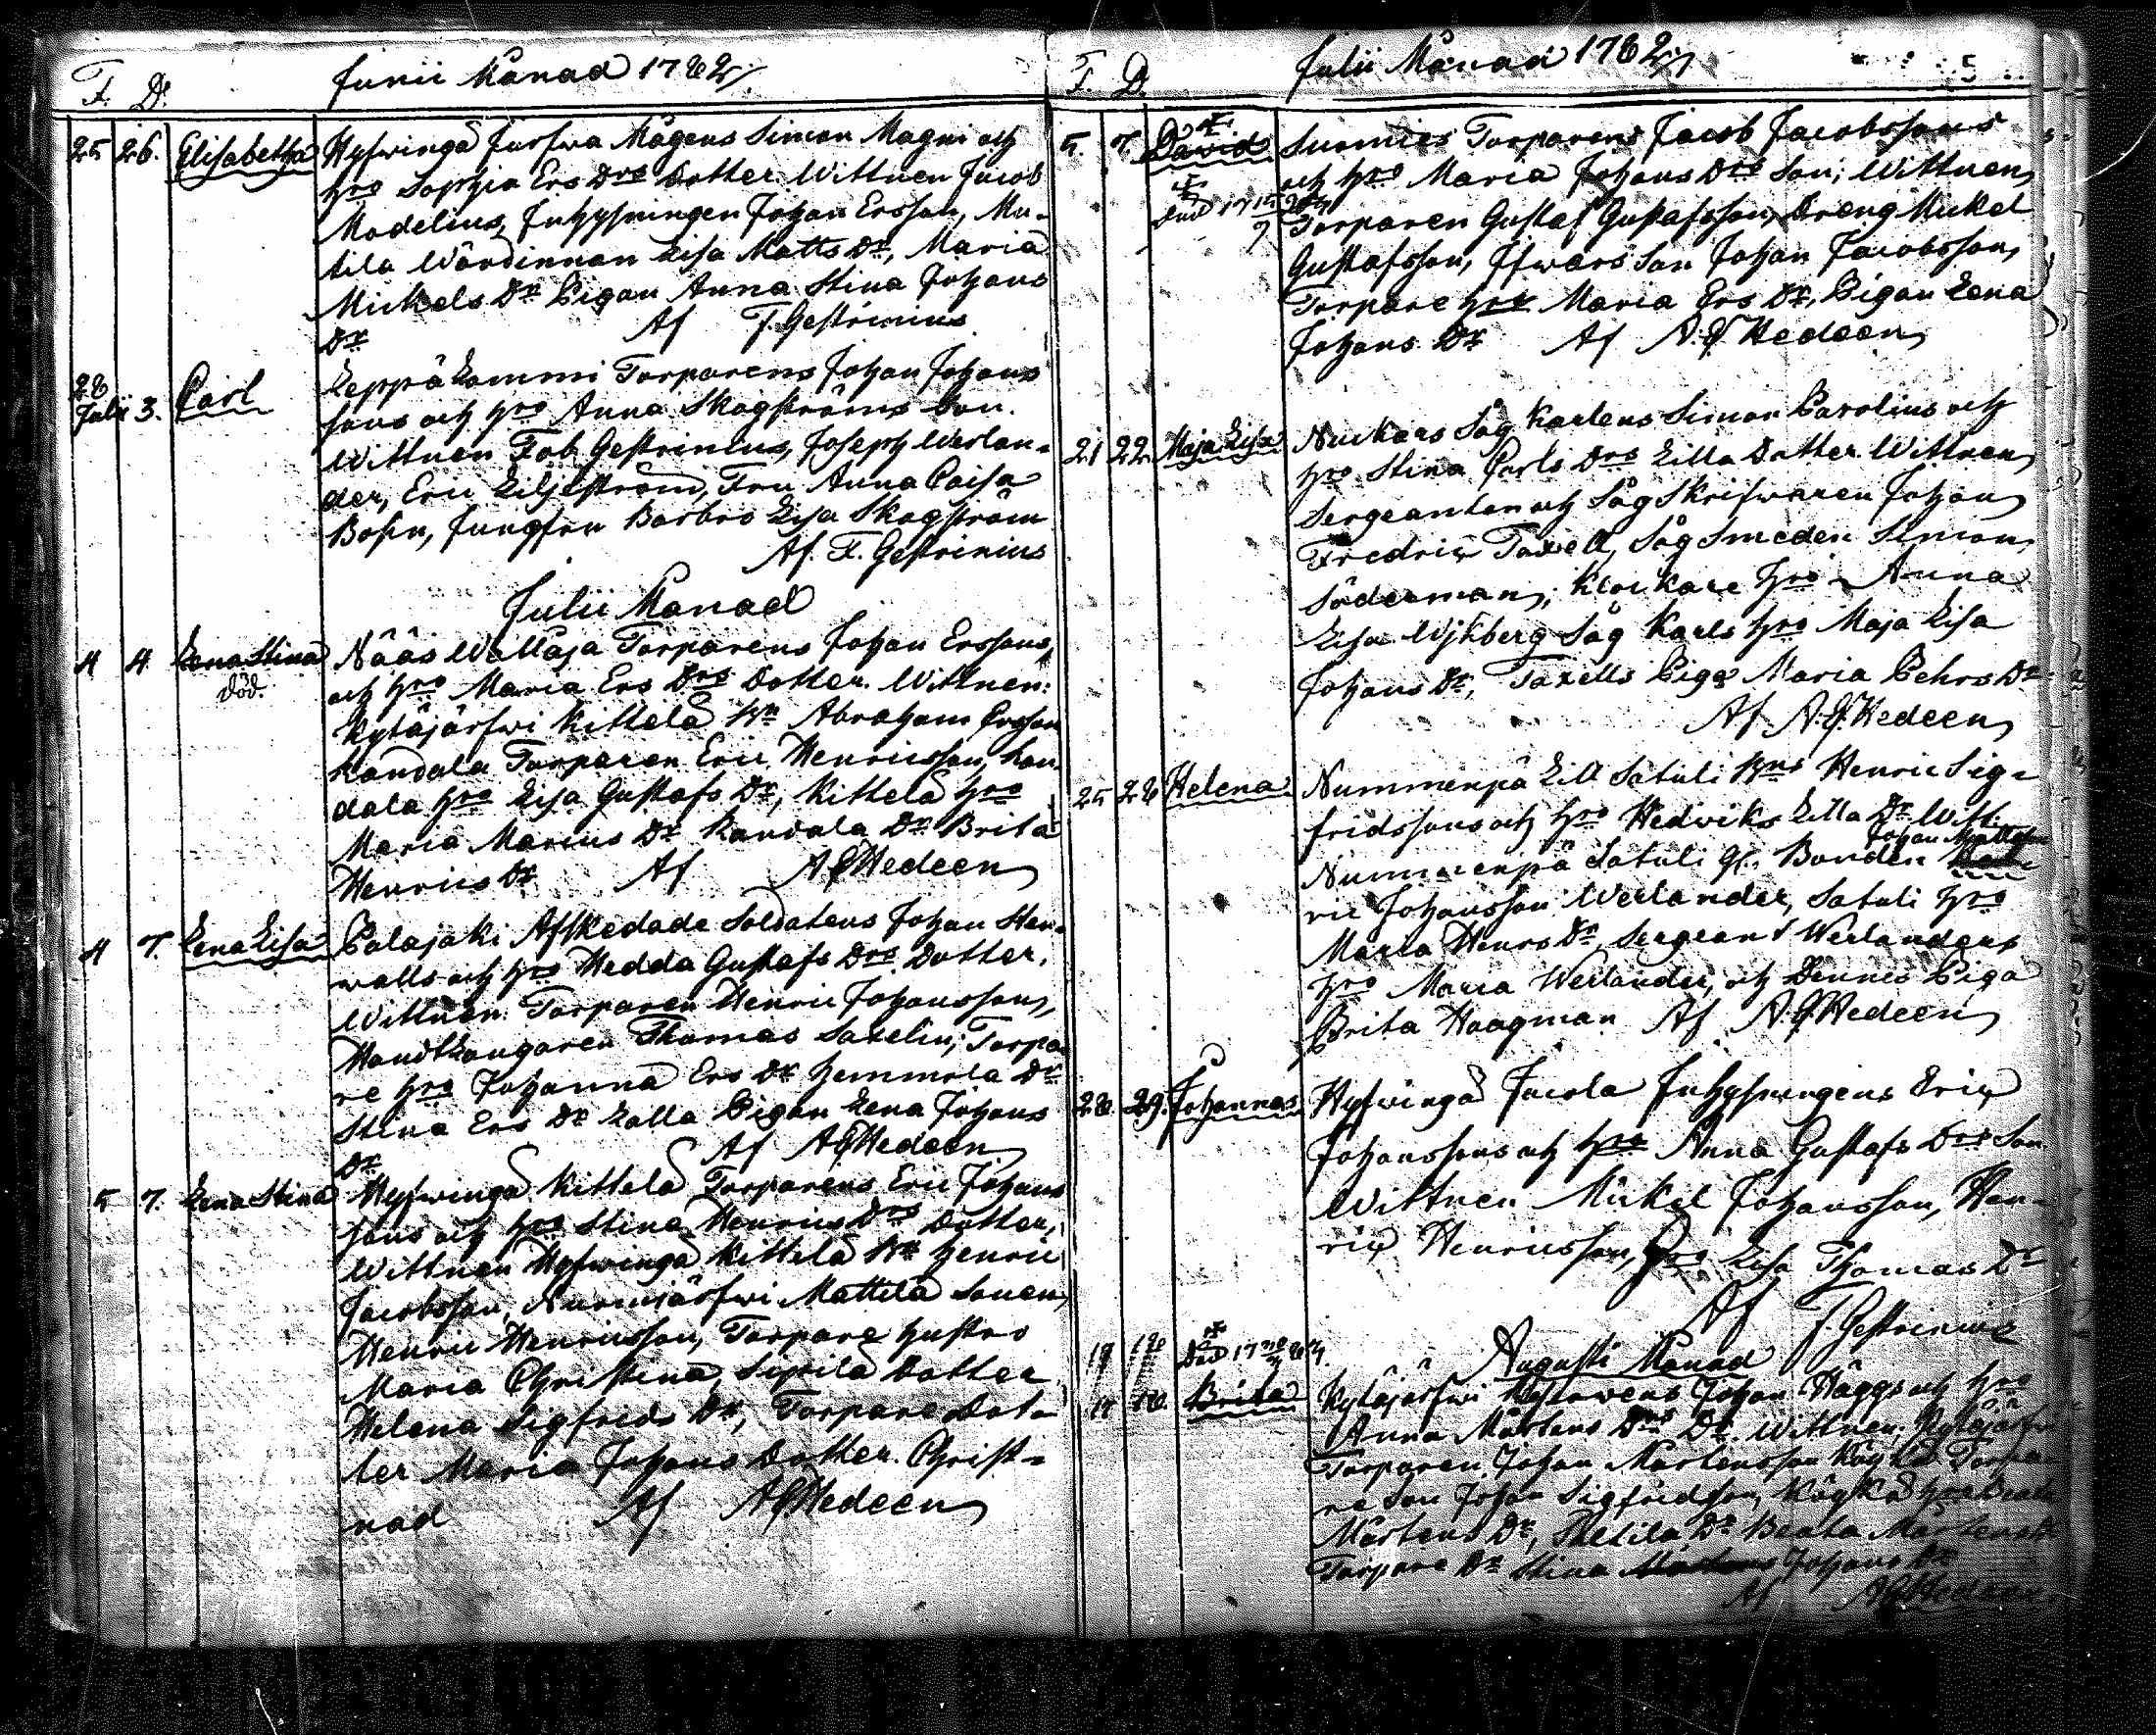 Junii Månad 1782
F. D.
25 26. Elisabetha Hyfwinga Jurfwa Mågens Simon Magni och
hro Sophia Ers Drs Dotter. Wittnen Jacob
Modelius, Inhysningen Johan Ersson, Mu-
tila Wärdinnan Lisa Matts Dr, Maria
Mickels Dr Pigan Anna Stina Johans
Dr Af F. Gestrinius
28 Julii 3. Carl Leppälammi Torparens Johan Johans
sons och hro Anna Skogströms Son.
Wittnen Fab Gestrinius, Joseph Werlan-
der, Eric Liljeström, Fru Anna Caisa
Bosin, Jungfru Barbro Lisa Skogström
Af. F. Gestrinius
Julii Månad
4 4 Lena Stina Nääs Wallåja Torparens Johan Erssons,
död. och hro Maria Ers Drs Dotter. Wittnen:
Kytäjärfwi Kittelä Wn Abraham Ersson
Kandala Torparen Eric Henricsson, Kan-
dala hro Lisa Gustafs Dr, Kittelä hro
Maria Marius Dr Kandala Dr Brita
Henrics Dr Af A G Hedeen
4 7. Lena Lisa Palajoki Afskedade Soldatens Johan Sten-
walls och hro Hedda Gustafs Drs Dotter.
Wittnen. Torparen Henric Johansson,
Handtlangaren Thomas Saxelin, Torpa-
re hro Johanna Ers Dr Hemmola Dr
Stina Ers Dr Lalla Pigan Lena Johans
Dr Af A G Hedeen
5 7. Lena Stina Hyfwinga Kittelä Torparens Eric Johans
sons och hro Stina Henrics Drs Dotter,
Wittnen Hyfwinga Kittelä Wn Henric
Jacobsson, Nurmijärfwi Mattila Sonen
Henric Henricsson, Torpare hustro
Maria Christina, Sipilä Dotter
Helena Sigfrids Dr, Torpare Dot-
ter Maria Johans Dotter. Christ-
nad Af A G Hedeen
Julii Månad 1782
F. D.
5. 7. David Suomies Torparens Jacob Jacobssons
och hro Maria Johans Drs Son; Wittnen,
död Torparen Gustaf Gustafsson, Dreng Mickel
Gustafsson, Ifwars Son Johan Jacobsson,
Torpare hro Maria Ers Dr, Pigan Lena
Johans Dr Af A. G. Hedeen
21 22. Maja Lisa Nuckars Såg Karlens Simon Carolius och
hro Stina Carls Drs Lilla Dotter Wittnen
Sergeanten och Såg Skrifwaren Johan
Fredric Taxell, Såg Smeden Simon
Söderman; Klockare hro Anna
Lisa Wykberg Såg Karls hro Maja Lisa
Johans Dr, Taxells Piga Maria Pehrs Dr
Af A. G. Hedeen
25 28 Helena Nummenpä Lill Satuli Wns Henric Sig-
fridssons och hro Hedviks Lilla Dr. Witt.
Nummenpä Satuli G. Bonden Johan Mattsson
ric Johansson Werlander, Satuli hro
Maria Henrs Dr, Sergeant Werlanders
hro Maria Werlander, och Dennes Piga
Brita Haagman Af A. G. Hedeen
28. 29. Johannes Hyfwinga Jacola Inhysningens Eric
Johanssons och hro Anna Gustafs Drs Son.
Wittnen Mickel Johansson, Hen-
ric Henricsson, hro Lisa Thomas Dr
Af F. Gestrinius
Augusti Månad
17 18 Brita Kytäjärfwi Johan Häggs och hro
Anna Mårtens Drs Dr. Wittnen; Kytäjärfwi
Torparen Johan Mårtensson Köykä Torpa-
re Son Johan Sigfridsson, Köykä hro Beata
Mårtens Dr, Skelila Dr Beata Mårtens Dr
Torpare Dr Stina Johans Dr
Af A G Hedeen